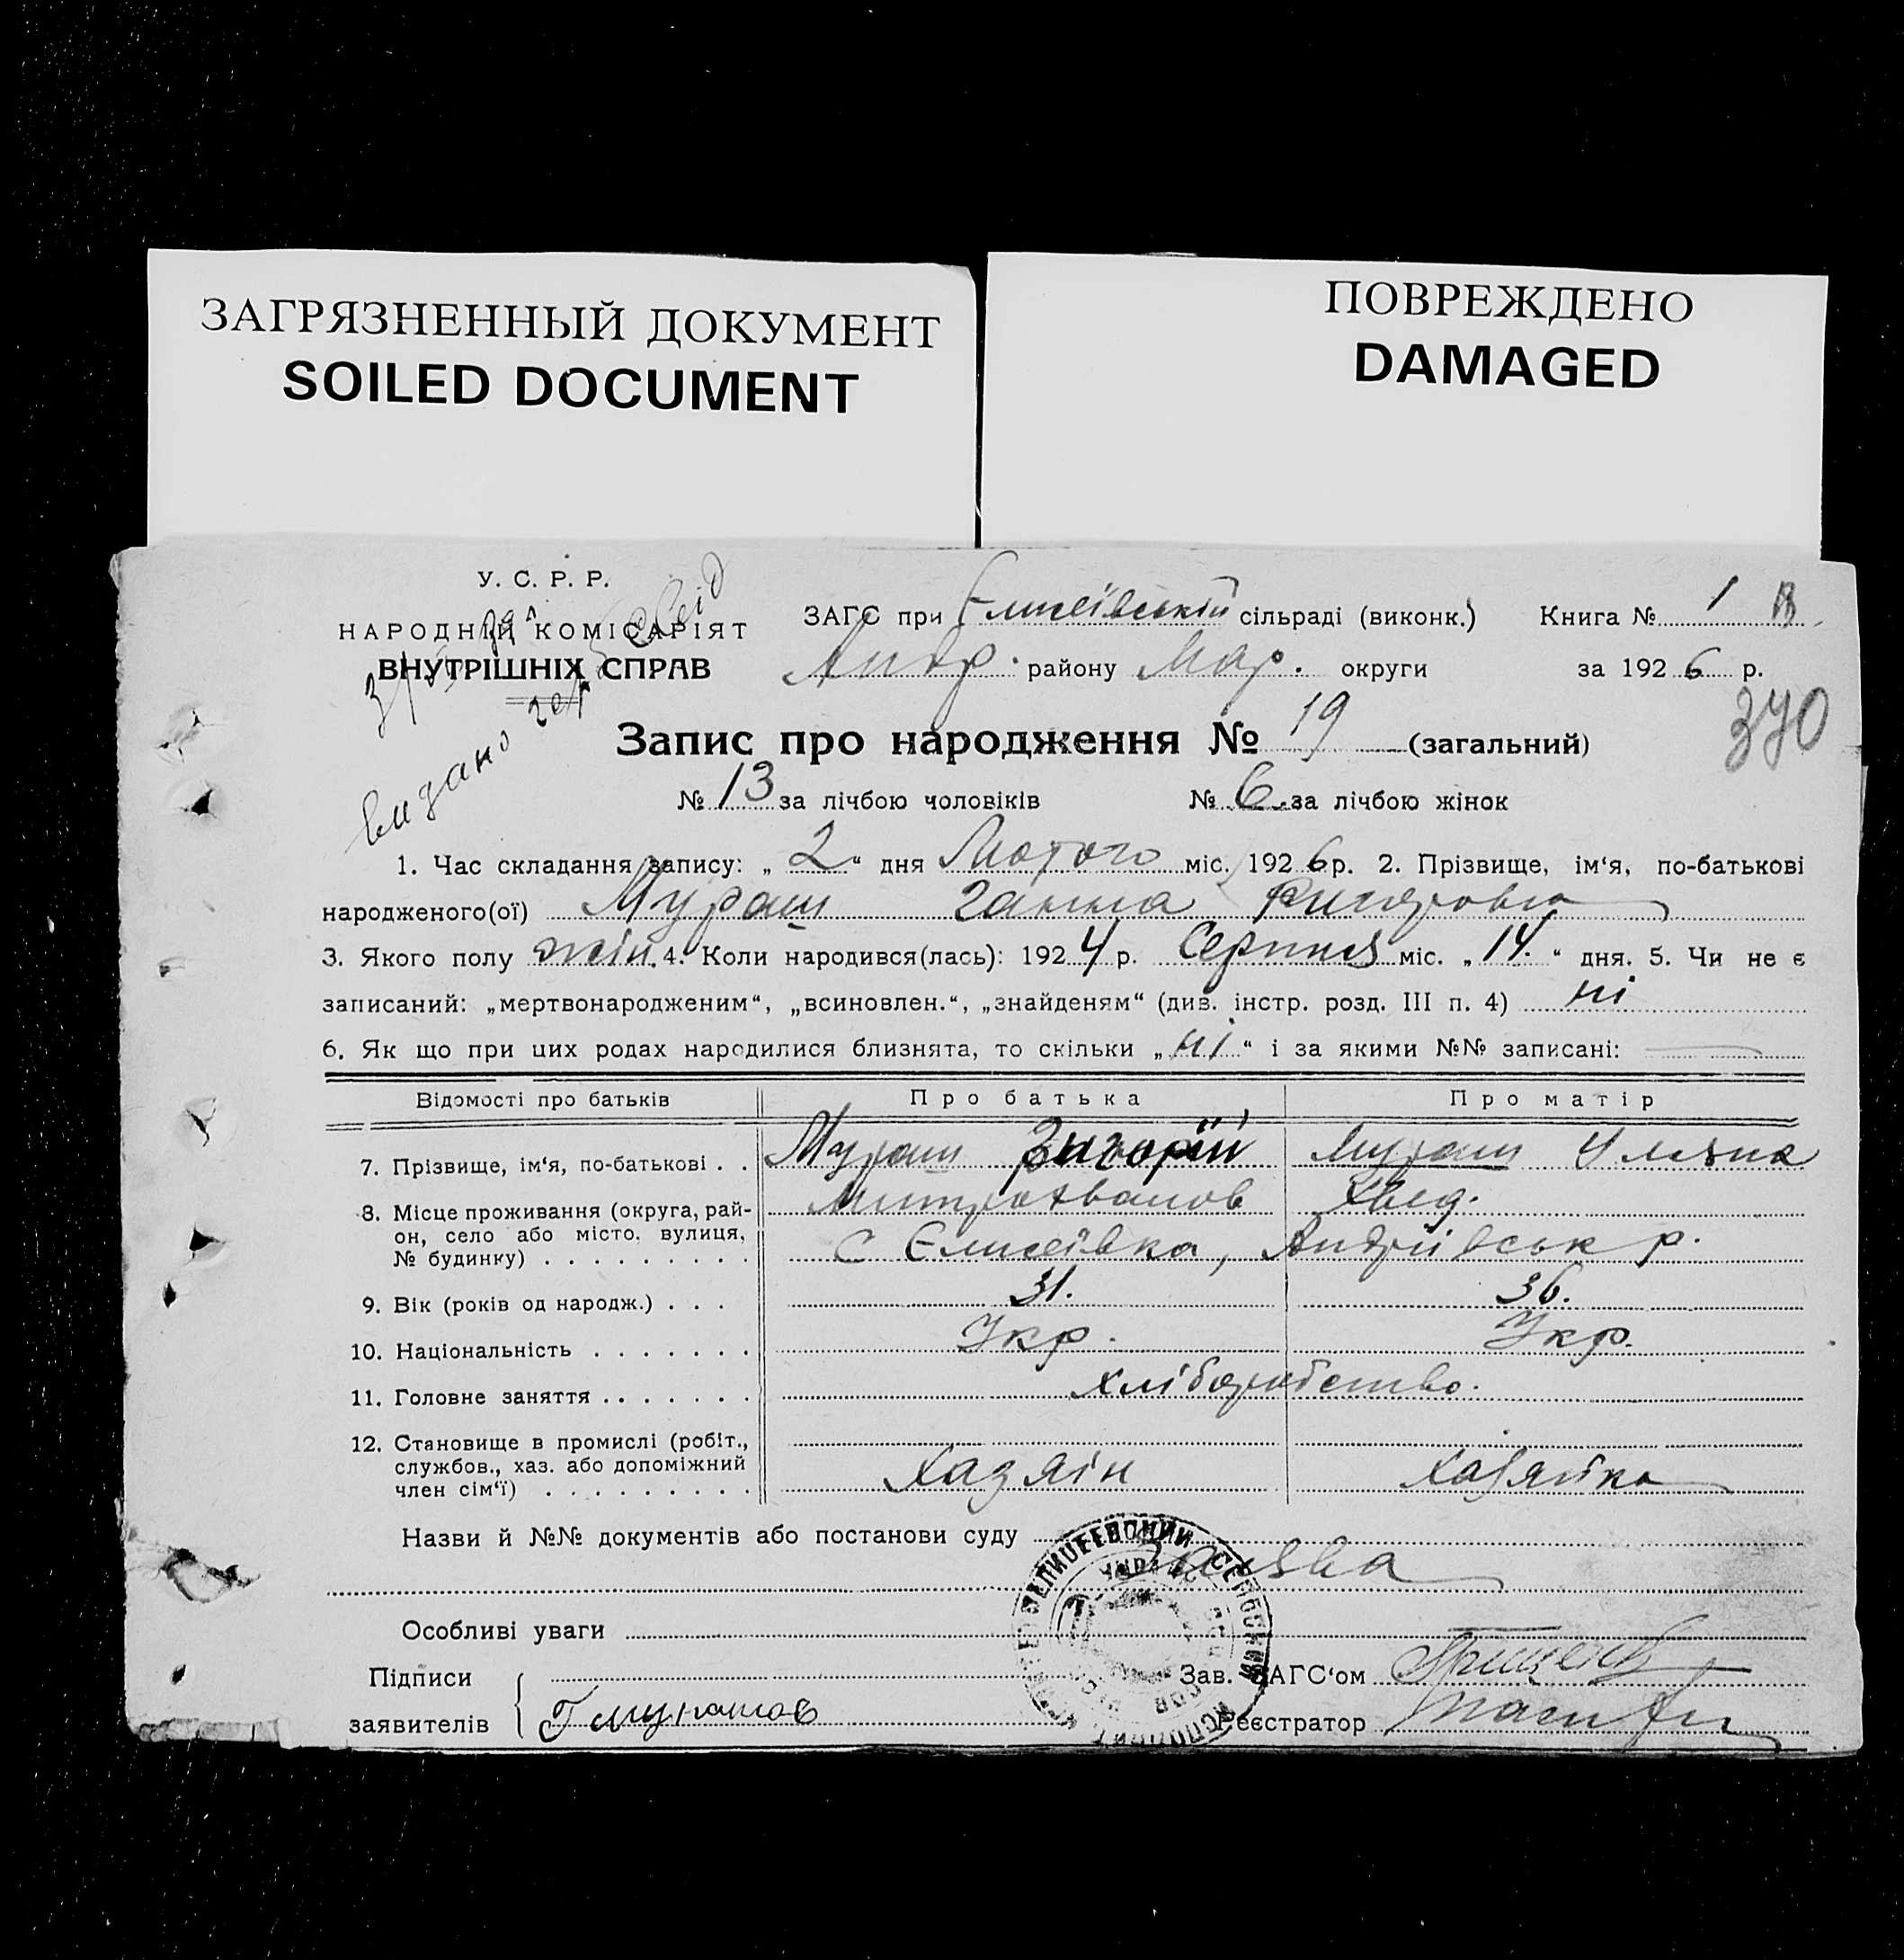 ЗАГРЯЗНЕННЫЙ ДОКУМЕНТ
SOILED DOCUMENT
ПОВРЕЖДЕНО
DAMAGED
У. С. Р. Р.
НАРОДНІЙ КОМІСАРІЯТ
ВНУТРІШНІХ СПРАВ
видано
ЗАГС при Єлисеївській сільраді (виконк.) Книга № 1
Андр. району Мар. округи за 1926 р.
370
Запис про народження № 19 (загальний)
№ 13 за лічбою чоловіків № 6 за лічбою жінок
1. Час складання запису: „ 2 “ дня Лютого міс. 1926 р. 2. Прізвище, ім‘я, по-батькові
народженого(ої) Мураш Ганна
3. Якого полу жін. 4. Коли народився(лась): 1924 р. Серпня міс. „ 14. “ дня. 5. Чи не є
записаний: „мертвонародженим“, „всиновлен.“, „знайденям“ (див. інстр. розд. III п. 4) ні
6. Як що при цих родах народилися близнята, то скільки „ ні “ і за якими №№ записані:
Відомості про батьків Про батька Про матір
7. Прізвище, ім‘я, по-батькові . . Мураш Мураш Уляна
Митрофванов Хвед.
8. Місце проживання (округа, рай-
он, село або місто, вулиця,
№ будинку) . . . . . . . . . с Єлисеївка, Андріівськ р.
9. Вік (років од народж.) . . . 31. 36.
10. Національність . . . . . . . Укр. Укр.
11. Головне заняття . . . . . . . хліборобство.
12. Становище в промислі (робіт.,
службов., хаз. або допоміжний
член сім‘ї) . . . . . . . . . Хазяін Хазяйка
Назви й №№ документів або постанови суду
Заява
Особливі уваги
Підписи Зав. ЗАГС‘ом
заявителів Г Мурашов Реєстратор